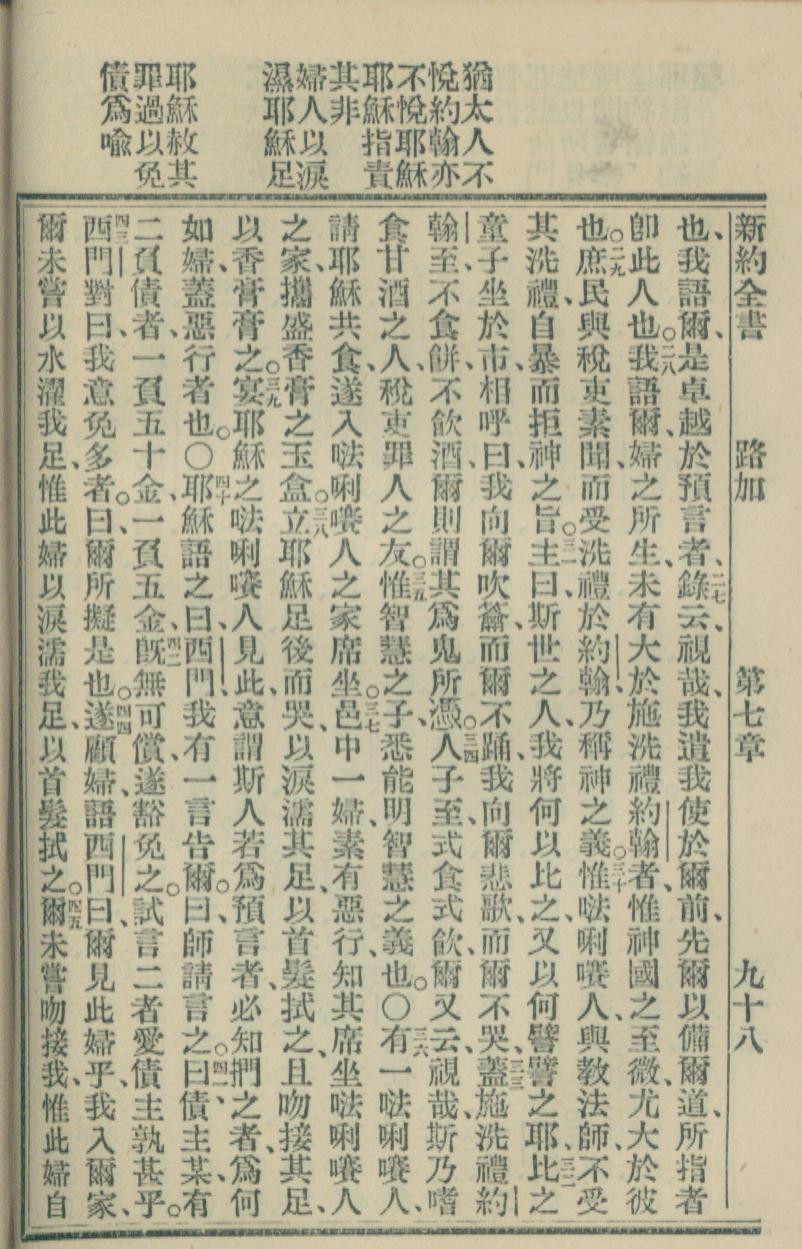 新約全書 路加 第七章 九十八
猶太人不
悅約翰亦
不悅耶穌
耶穌指責
其非
婦人以淚
濕耶穌足
耶穌赦其
罪過以免
債爲喻
也、我語爾、是卓越於預言者、二七錄云、視哉、我遣我使於爾前、先爾以備爾道、所指者
卽此人也、○二八我語爾、婦之所生、未有大於施洗禮約翰者、惟神國之至微、尤大於彼
也、○二九庶民與稅吏素聞而受洗禮於約翰、乃稱神之義、○三十惟㳒唎㘔人、與教法師、不受
其洗禮、自暴而拒神之旨、○三一主曰、斯世之人、我將何以比之、又以何譬譬之耶、三二比之
童子坐於市、相呼曰、我向爾吹籥、而爾不踊、我向爾悲歌、而爾不哭、三三蓋施洗禮約
翰至、不食餅、不飲酒、爾則謂其爲鬼所憑、○三四人子至、式食式飲、爾又云、視哉、斯乃嗜
食甘酒之人、稅吏罪人之友、○三五惟智慧之子、悉能明智慧之義也、○三六有一㳒唎㘔人、
請耶穌共食、遂入㳒唎㘔人之家席坐、○三七邑中一婦、素有惡行、知其席坐㳒唎㘔人
之家、攜盛香膏之玉盒、○三八立耶穌足後而哭、以淚濡其足、以首髮拭之、且吻接其足、
以香膏膏之、○三九宴耶穌之㳒唎㘔人見此、意謂斯人若爲預言者、必知捫之者、爲何
如婦、蓋惡行者也、○四十耶穌語之曰、西門、我有一言告爾、○曰、師請言之、○四一曰、債主某、有
二負債者、一負五十金、一負五金、四二旣無可償、遂豁免之、○試言二者愛債主孰甚乎、○
四三西門對曰、我意免多者、○曰、爾所擬是也、○四四遂顧婦、語西門曰、爾見此婦乎、我入爾家、
爾未嘗以水濯我足、惟此婦以淚濡我足、以首髮拭之、○四五爾未嘗吻接我、惟此婦自